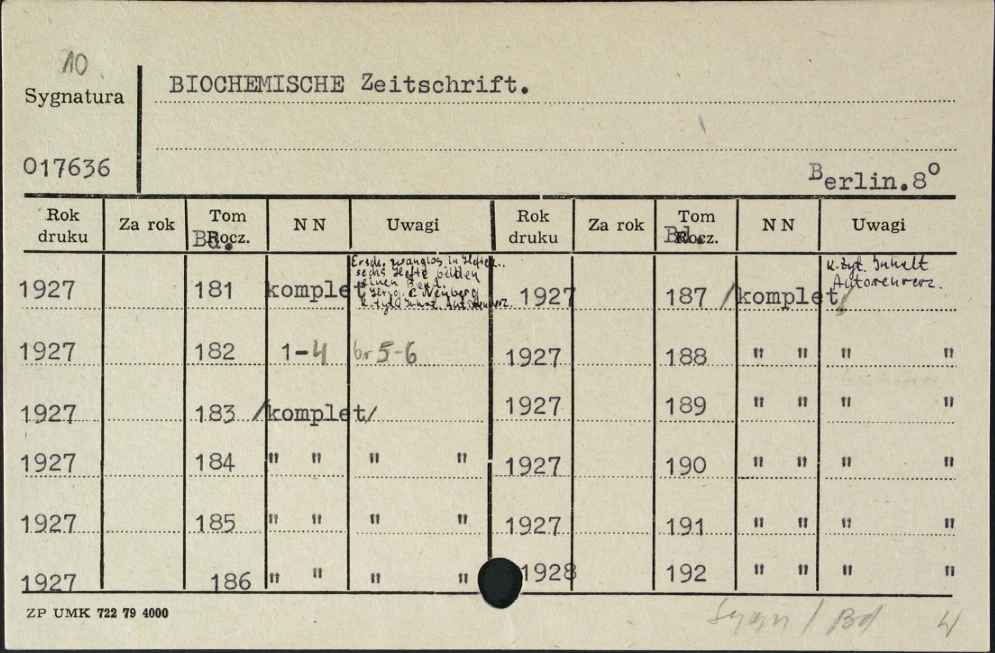 10
Sygnatura
BIOCHEMISCHE Zeitschrift.
017636
Berlin.8°
Rok druku Za rok Tom Rocz. Bd. NN Uwagi Rok druku Za rok Tom Rocz. Bd. NN Uwagi
Ersch. zwanglos in Heften..
sechs Hefte bilden
einen Band.
C. Neuberg
1927 181 komplet
k. tyt. Inhalt
Autorenverz.
1927 187 /komplet/
1927 182 1-4 br 5-6 1927 188 " " " "
1927 183 /komplet/ 1927 189 " " " "
1927 184 " " " " 1927 190 " " " "
1927 185 " " " " 1927 191 " " " "
1927 186 " " " " 1928 192 " " " "
ZP UMK 722 79 4000
Sygn / Bd